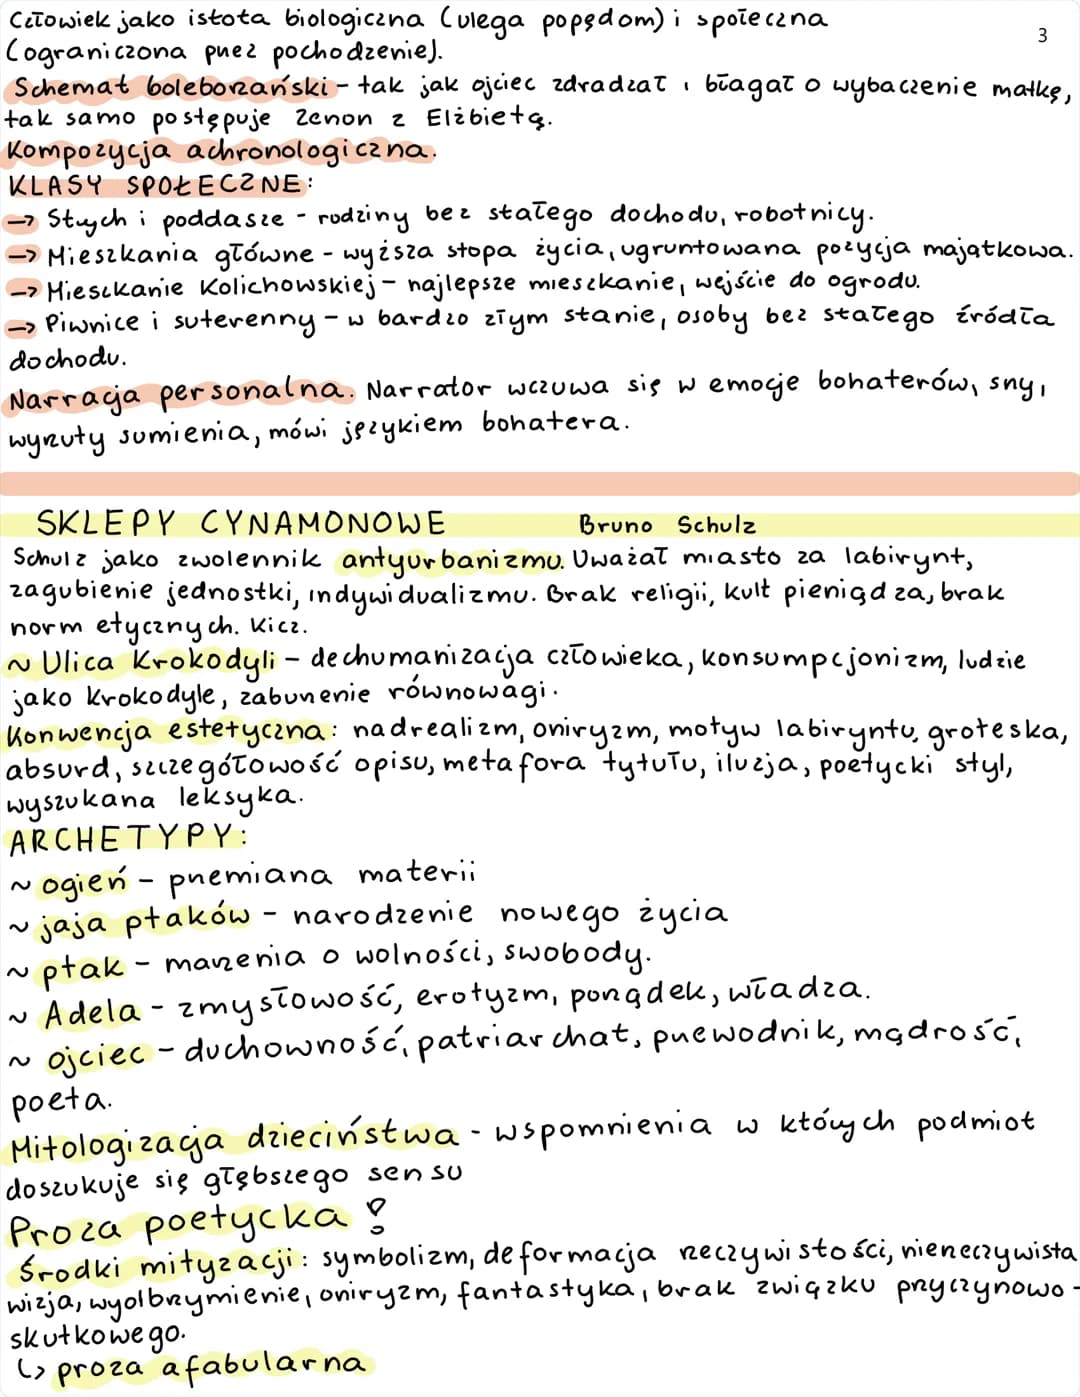 Człowiek jako istota biologiczna (ulega popędom) i społeczna
3
(ograniczona przez pochodzenie).
Schemat boleborzański - tak jak ojciec zdradzał i błagał o wybaczenie matkę,
tak samo postępuje Zenon z Elżbietą.
Kompozycja achronologiczna.
KLASY SPOŁECZNE:
→ Strych i poddasze - rodziny bez stałego dochodu, robotnicy.
→ Mieszkania główne - wyższa stopa życia, ugruntowana pozycja majątkowa.
→ Mieszkanie Kolichowskiej - najlepsze mieszkanie, wejście do ogrodu.
→ Piwnice i suterenny - w bardzo złym stanie, osoby bez stałego źródła
dochodu.
Narracja personalna. Narrator wczuwa się w emocje bohaterów, sny,
wyrzuty sumienia, mówi językiem bohatera.
SKLEPY CYNAMONOWE Bruno Schulz
Schulz jako zwolennik antyurbanizmu. Uważał miasto za labirynt,
zagubienie jednostki, indywidualizmu. Brak religii, kult pieniądza, brak
norm etycznych. Kicz.
~ Ulica Krokodyli - dechumanizacja człowieka, konsumpcjonizm, ludzie
jako krokodyle, zaburzenie równowagi.
Konwencja estetyczna: nadrealizm, oniryzm, motyw labiryntu, groteska,
absurd, szczegółowość opisu, metafora tytułu, iluzja, poetycki styl,
wyszukana leksyka.
ARCHETYPY:
~ ogień - przemiana materii
~ jaja ptaków - narodzenie nowego życia
~ ptak - marzenia o wolności, swobody.
~ Adela - zmysłowość, erotyzm, porządek, władza.
~ ojciec - duchowność, patriarchat, przewodnik, mądrość,
poeta.
Mitologizacja dzieciństwa - wspomnienia w których podmiot
doszukuje się głębszego sensu
Proza poetycka !
Środki mityzacji: symbolizm, deformacja rzeczywistości, nierzeczywista
wizja, wyolbrzymienie, oniryzm, fantastyka, brak związku przyczynowo-
skutkowego.
↳ proza afabularna